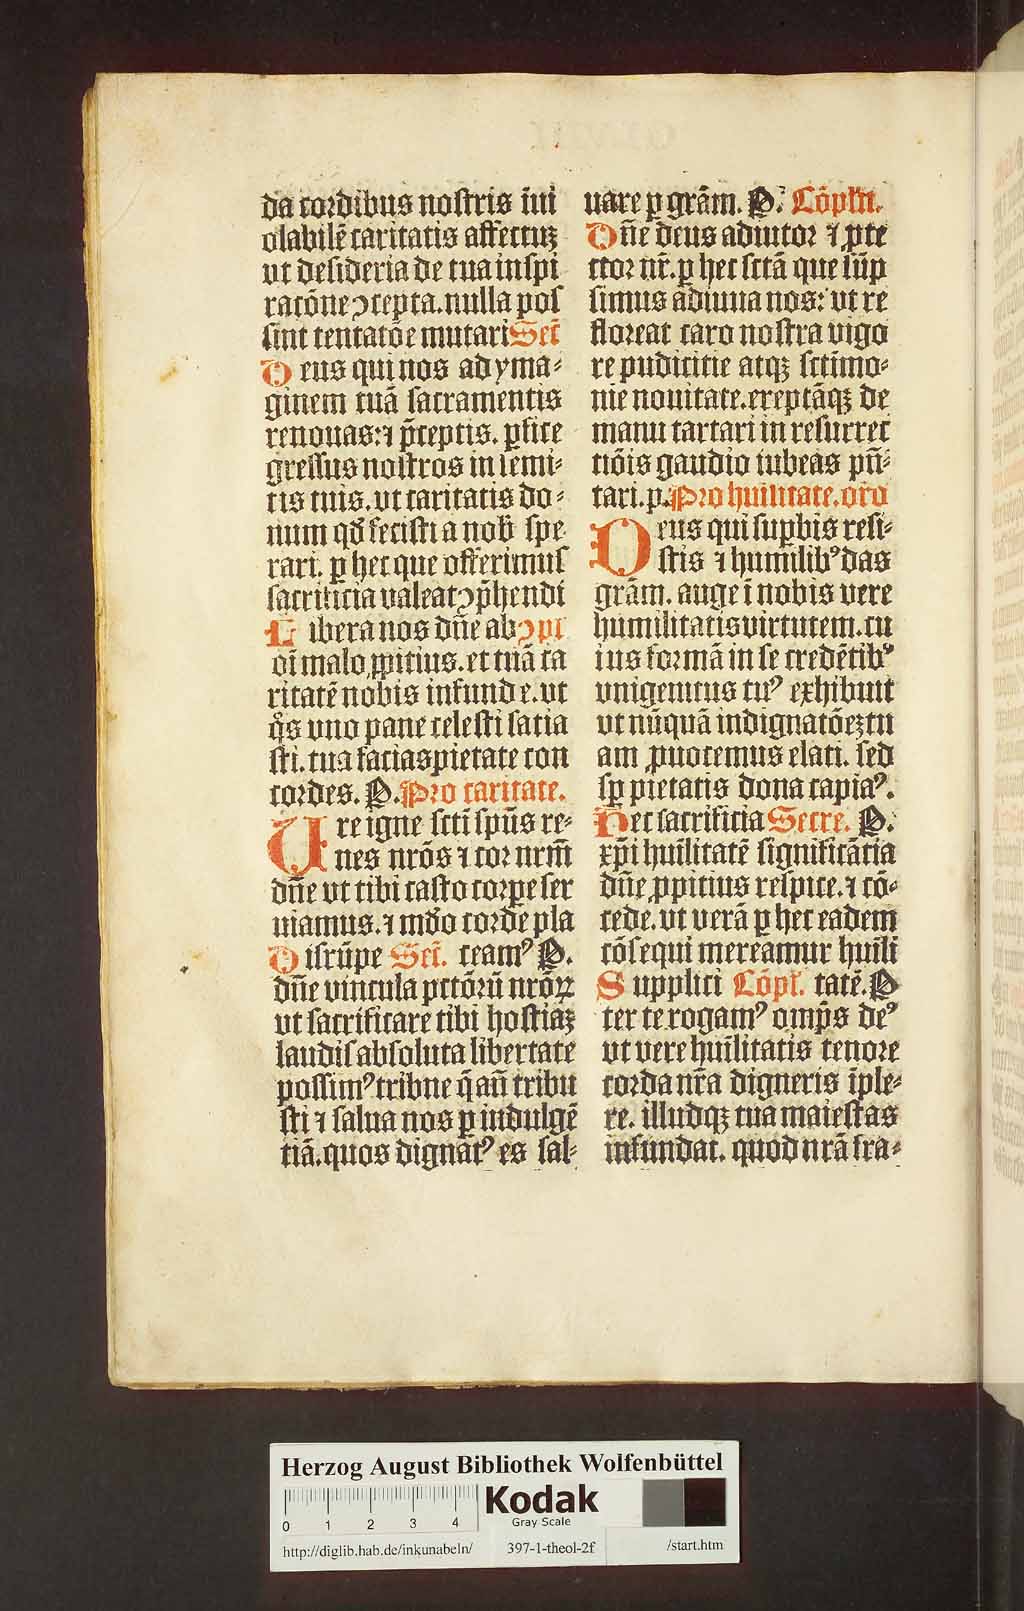 da cordibus nostris īui
olabilē caritatis affectuꝫ
vt desideria de tua inspi
ratōne ꝯcepta. nulla pos
sint tentatōe mutari Secͭ
Deus qui nos ad yma⸗
ginem tuā sacramentis
renouas: ⁊ p̄ceptis. ꝑfice
gressus nostros in semi⸗
tis tuis. vt caritatis do⸗
num qđ fecisti a nob̄ spe
rari. ꝑ hec que offerimus
sacrificia valeat ꝯp̄hendi
Libera nos dn̄e ab ꝯpľ
oī malo ꝓpitius. et tuā ca
ritatē nobis infunde. vt
qͦs vno pane celesti satia
sti. tua facias pietate con
cordes. P. Pro caritate.
Ure igne scti spūs re⸗
nes nrōs ⁊ cor nrm̄
dn̄e vt tibi casto corꝑe ser
uiamus. ⁊ mūdo corde pla
Disrūpe Secͭ. ceamꝰ P.
dn̄e vincula pctōrū nrōꝝ
vt sacrificare tibi hostiaꝫ
laudis absoluta libertate
possimꝰ tribue q̄ an̄ tribu
isti ⁊ salua nos ꝑ indulgē
tiā. quos dignatꝰ es sal⸗
uare ꝑ grām. P. Cōplēn.
Dn̄e deus adiutor ⁊ ꝓte
ctor nr̄. ꝑ hec sctā que sūp
simus adiuua nos: vt re
floreat caro nostra vigo
re pudicitie atqꝫ sctīmo⸗
nie nouitate. ereptāqꝫ de
manu tartari in resurrec
tiōis gaudio iubeas pn̄⸗
tari. p. Pro hūilitate. oro
Deus qui suꝑbis resi⸗
stis ⁊ humilibꝰ das
grām. auge ī nobis vere
humilitatis virtutem. cu
ius formā in se credētibꝰ
vnigenitus tuꝰ exhibuit
vt nūquā indignatōeꝫ tu
am ꝓuocemus elati. sed
sꝑ pietatis dona capiaꝰ.
Hec sacrificia Secre. P.
xp̄i hūilitatē significātia
dn̄e ꝓpitius respice. ⁊ cō⸗
cede. vt verā ꝑ hec eadem
cōsequi mereamur hūili
Supplici Cōpľ. tatē. P
ter te rogamꝰ omps̄ deꝰ
vt vere hūilitatis tenore
corda nr̄a digneris īple⸗
re. illudqꝫ tua maiestas
infundat. quod nrā fra⸗
Herzog August Bibliothek Wolfenbüttel
0 1 2 3 4
Kodak
Gray Scale
http://diglib.hab.de/inkunabeln/ 397-1-theol-2f /start.htm